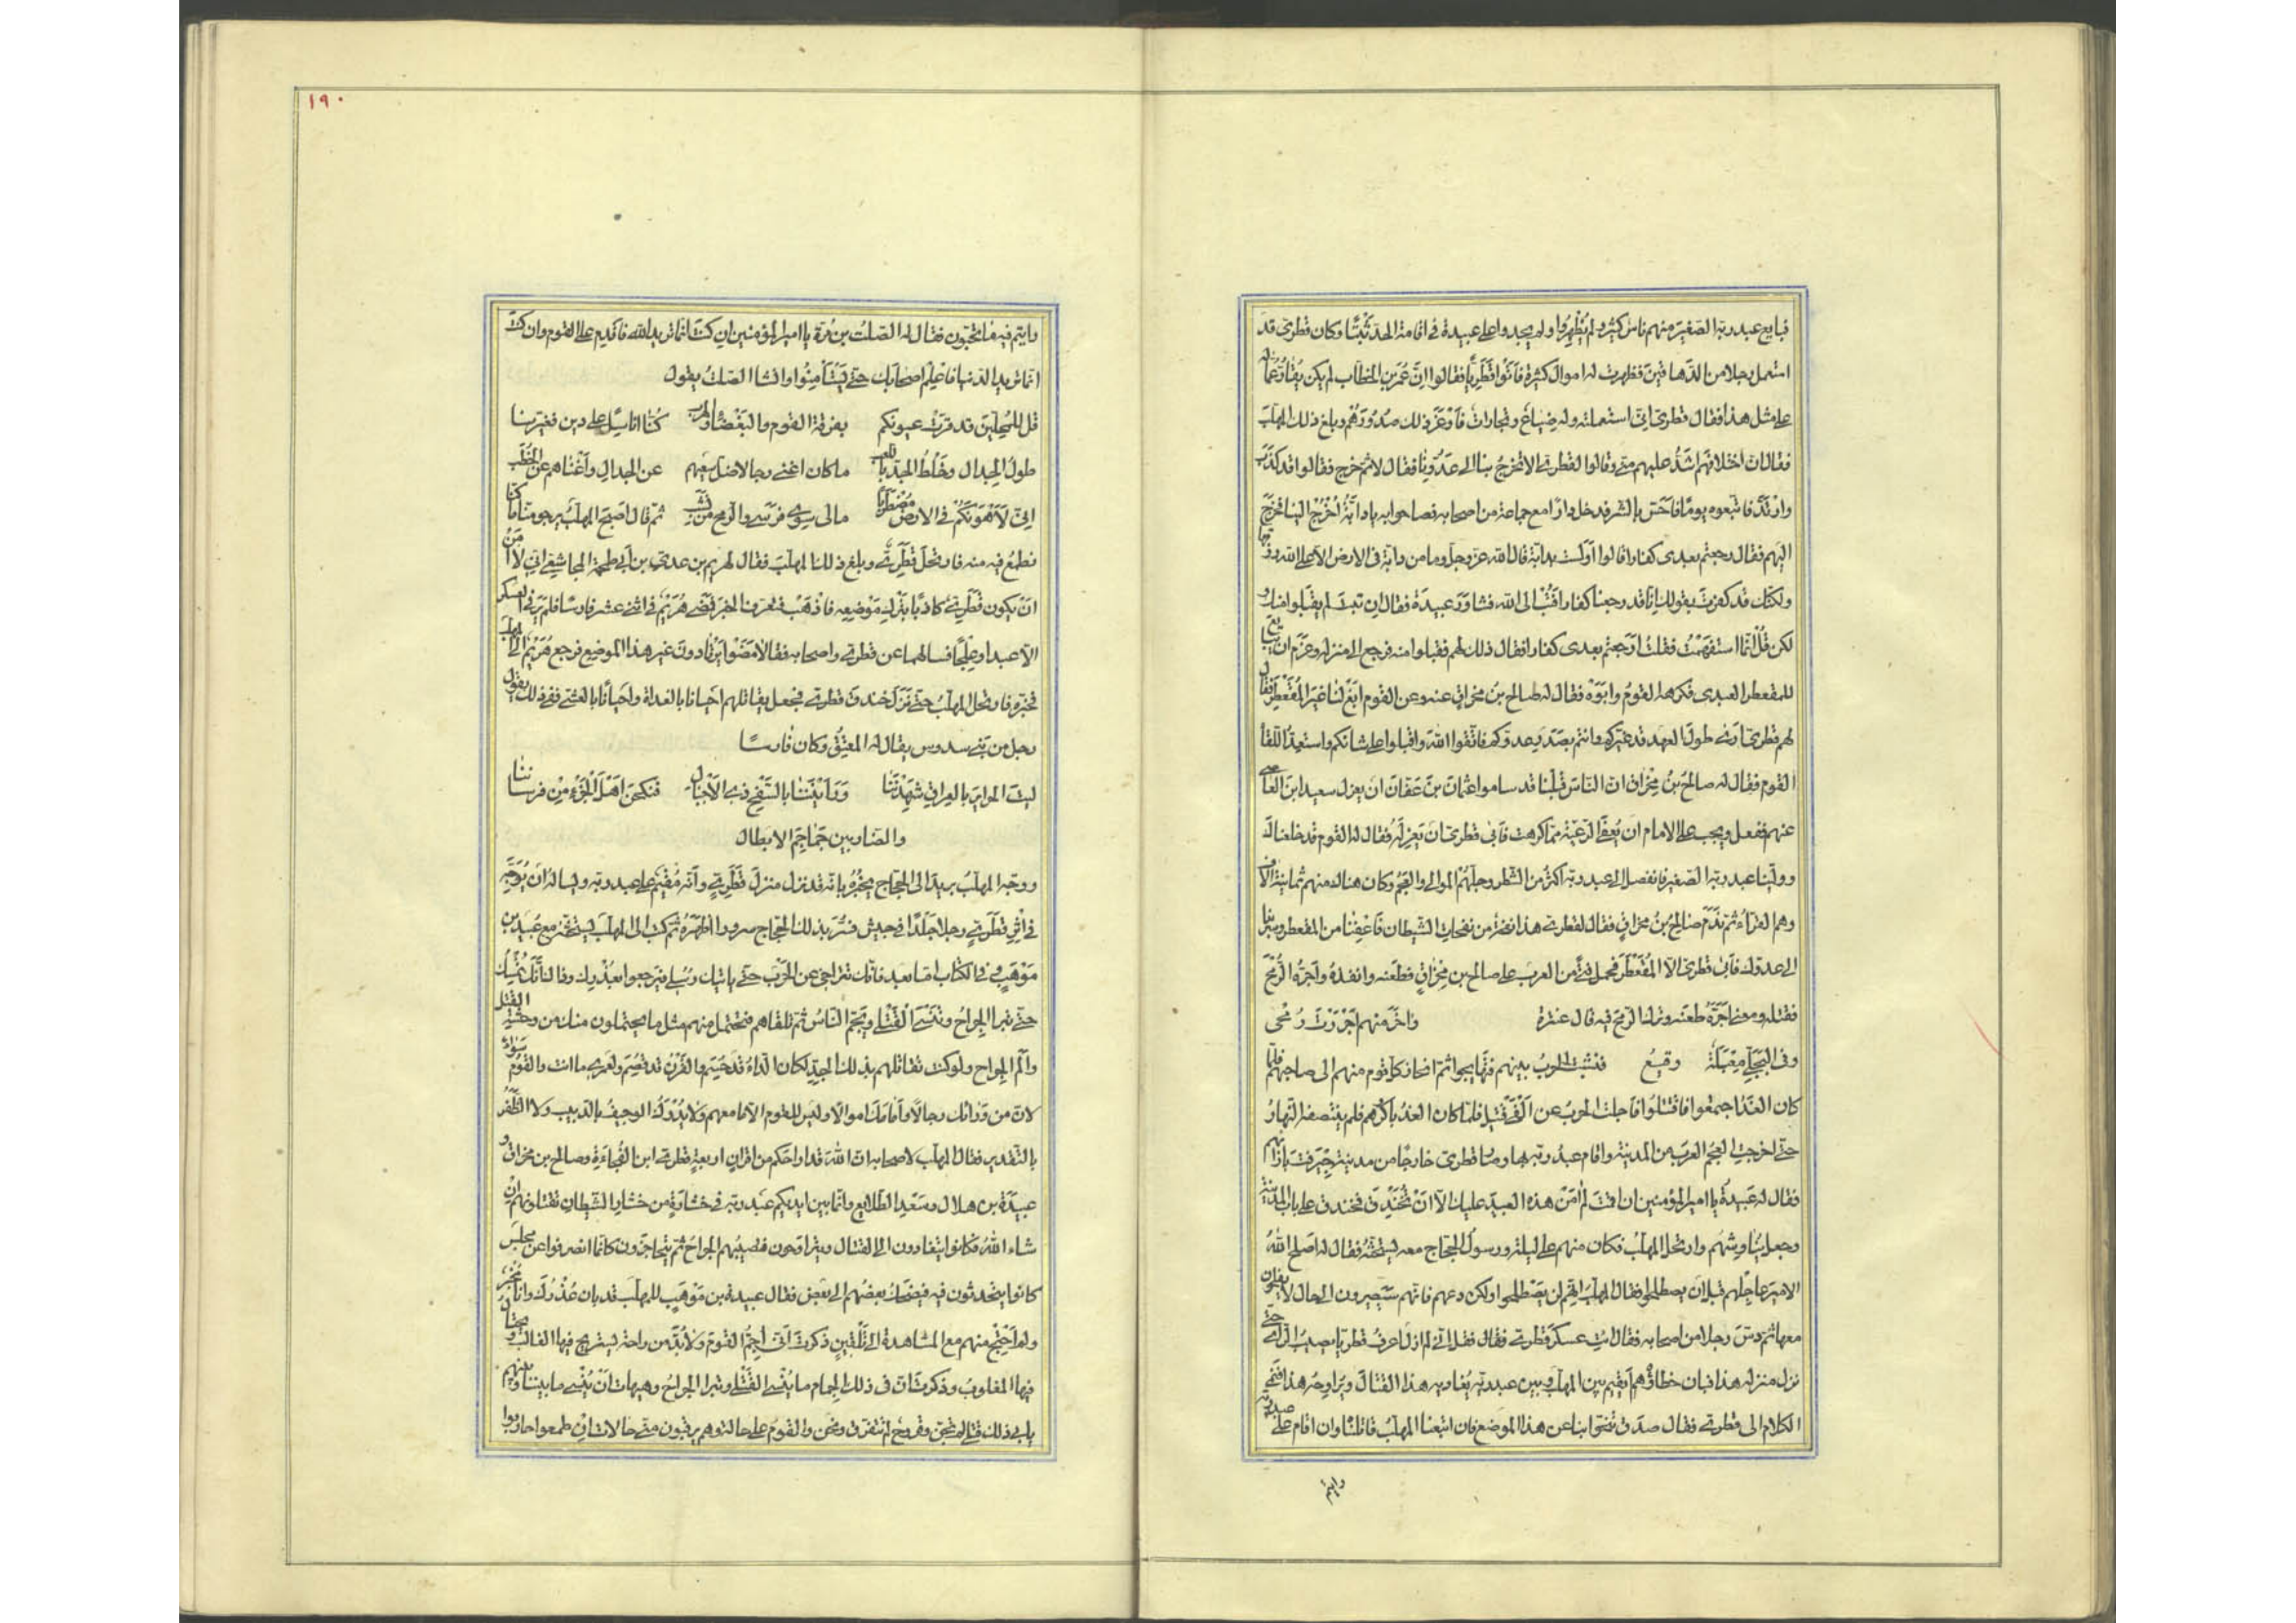 فبايع عبد ربه الصغير منهم ناس كثير ولم يظهروا ولم يجدوا على عبيدة في اقامة الحد ثبتًا وكان قطرى قد
استعمل رجلا من الدهاقين فظهرت له اموال كثيرة فأتوا قطريا فقالوا إنّ عمر بن الخطاب لم يكن يقارّ عماله
على مثل هذا فقال قطرى انى استعملته وله ضياع وتجارات فأوغر ذلك صدورهم وبلغ ذلك المهلب
فقال ان اختلافهم اشدّ عليهم منى وقالوا لقطرى الا تخرج بنا الى عدونا فقال لا ثم خرج فقالوا قد كذب
وارتدّ فاتبعوه يومًا فاحسّ بالشر فدخل دارًا مع جماعة من اصحابه فصاحوا به يا دابّة اخرج الينا فخرج
اليهم فقال رجعتم بعدى كفارا قالوا أولست بدابة قال الله عز وجل وما من دابة فى الارض الا على الله رزقها
ولكنك قد كفرت بقولك انا قد رجعنا كفارا فتب الى الله فشاور عبيدة فقال ان تبت لم يقبلوا منك و
لكن قل انما استفهمت فقلت أرجعتم بعدى كفارا فقال ذلك لهم فقبلوا منه فرجع الى منزله وعزم ان يبايع
للمقعطر العبدى فكرهه القوم وابوه فقال له صالح بن مخراق عنه وعن القوم ابغ لنا غير المقعطر فقال
لهم قطرى ارى طول العهد قد غيركم وانتم بصدد عدوكم فاتقوا الله واقبلوا على شانكم واستعدّوا للقاء
القوم فقال له صالح بن مخراق ان الناس قبلنا قد ساموا عثمان بن عفان ان يعزل سعيد ابن العاصى
عنهم ففعل ويجب على الامام ان يعفى الرعية مما كرهت فأبى قطرى ان يعزله فقال له القوم قد خلعناك
وولينا عبد ربه الصغير فانفصل الى عبد ربه اكثر من الشطر وجلهم الموالى والعجم وكان هناك منهم ثمانية الاف
وهم القراء ثم ندم صالح بن مخراق فقال لقطرى هذا نفخة من نفخات الشيطان فاعفنا من المقعطر وسر بنا
الى عدوك فأبى قطرى الا المقعطر فحمل فتى من العرب على صالح بن مخراق فطعنه وانفذه واجره الرمح
فقتله ومعنى اجره طعنه وترك الرمح فيه قال عنترة وآخر منهم اجررت رمحى
وفى البجلى معبلة وقيع فنشبت الحرب بينهم فتهايجوا ثم انحاز كل قوم منهم الى صاحبهم فلما
كان الغد اجتمعوا فاقتتلوا فاجلت الحرب عن الفى قتيل فلما كان الغد باكرهم فلم ينتصف النهار
حتى اخرجت العجم العرب من المدينة واقام عبد ربه بها وصار قطرى خارجًا من مدينة جيرفت بازائهم
فقال له عبيدة يا امير المؤمنين ان اقمت لم آمن هذه العبيد عليك الا ان تخندق فخندق على باب المدينة
وجعل يناوشهم وارتحل المهلب فكان منهم على ليلة ورسول الحجاج معه يستحثه فقال له اصلح الله
الامير عاجلهم قبل ان يصطلحوا فقال المهلب انهم لن يصطلحوا ولكن دعهم فانهم سيصيرون الى حال لا يفلحون
معها ثم دسّ رجلا من اصحابه فقال ائت عسكر قطرى فقال فقل انى لم ازل اعرف قطريا يصيب الراى حتى
نزل منزله هذا فبان خطاؤه ايقيم بين المهلب وبين عبد ربه يغاديه هذا القتال ويراوحه هذا فنمى
الكلام الى قطرى فقال صدق تنحّوا بنا عن هذا الموضع فان اتبعنا المهلب قاتلناه وان اقام على عبد ربه
رايتم
١٩٠
رايتم فيه ما تحبون فقال له الصلت بن مرة يا امير المؤمنين ان كنت انما تريد الله فاقدم على القوم وان كنت
انما تريد الدنيا فاعلم اصحابك حتى يستأمنوا وانشا الصلت يقول
قل للمحلين قد قرت عيونكم بفرقة القوم والبغضاء والهرب كنا اناسا على دين فغيرنا
طول الجدال وخلط الجد باللعب ما كان اغنى رجالا ضل سعيهم عن الجدال وأغناهم عن الخطب
انى لأهونكم فى الارض مضطربا مالى سوى فرسى والرمح من نشب ثم قال اصبح المهلب يرجو منا ما كنا
نطمع فيه منه فارتحل قطرى وبلغ ذلك المهلب فقال لهريم بن عدى بن أبى طحمة المجاشعى انى لا آمن
ان يكون قطرى كاذبًا بترك موضعه فاذهب فتعرف الخبر فمضى هريم فى اثنى عشر فارسًا فلم ير فى العسكر
الا عبدا وعلجًا فسالهما عن قطرى واصحابه فقالا مضوا يرتادون غير هذا الموضع فرجع هريم الى المهلب
فخبره فارتحل المهلب حتى نزل خندق قطرى فجعل يقاتلهم احيانا بالغداة واحيانا بالعشى ففى ذلك يقول
رجل من بنى سدوس يقال له المعنق وكان فارسًا
ليت الحراير بالعراق شهدننا ورأيننا بالسفح ذى الأجبال فنكحن اهل الجزء من فرساننا
والضاربين جماجم الابطال
ووجه المهلب يزيد الى الحجاج يخبره بانه قد نزل منزل قطرى وأنه مقيم على عبد ربه ويساله ان يوجه
فى اثر قطرى رجلا جلدًا فى جيش فسرّ بذلك الحجاج سرورا اظهره ثم كتب الى المهلب يستحثه مع عبيد بن
موهب وفى الكتاب اما بعد فانك تتراخى عن الحرب حتى ياتيك رسلى فيرجعوا بعذرك وذلك أنك تمسك
حتى تبرا الجراح وتنسى القتلى ويجم الناس ثم تلقاهم فتحتمل منهم مثل ما يحتملون منك من وحشة القتل
والم الجراح ولو كنت تقاتلهم بذلك الجد لكان الداء قد حسم والقرن قد قصم ولعمرى ما انت والقوم سواء
لان من ورائك رجالا وأمامك اموالا وليس للقوم الا ما معهم ولا يدرك الوجيف بالدبيب ولا الظفر
بالتعذير فقال المهلب لاصحابه ان الله قد اراحكم من اقران اربعة قطرى ابن الفجاءة وصالح بن مخراق و
عبيدة بن هلال وسعد الطلايع وانما بين ايديكم عبد ربه فى خشارة من خشار الشيطان تقتلونهم ان
شاء الله فكانوا يتغادون الى القتال ويتراوحون فتصيبهم الجراح ثم يتحاجزون كانما انصرفوا عن مجلس
كانوا يتحدثون فيه فيضحك بعضهم الى بعض فقال عبيدة بن موهب للمهلب قد بان عذرك وانا مخبر
ولم احتج منهم مع المشاهدة الى تلقين ذكرت انى اجم القوم ولا بد من راحة يستريح فيها الغالب ويحتال
فيها المغلوب وذكرت ان فى ذلك الجمام ما ينسى القتلى وتبرا الجراح وهيهات ان ينسى ما بيننا وبينهم
يابى ذلك قتلى لم تجن وقروح لم تتقرف ونحن والقوم على حالة وهم يرقبون منى حالات ان طمعوا حاربوا